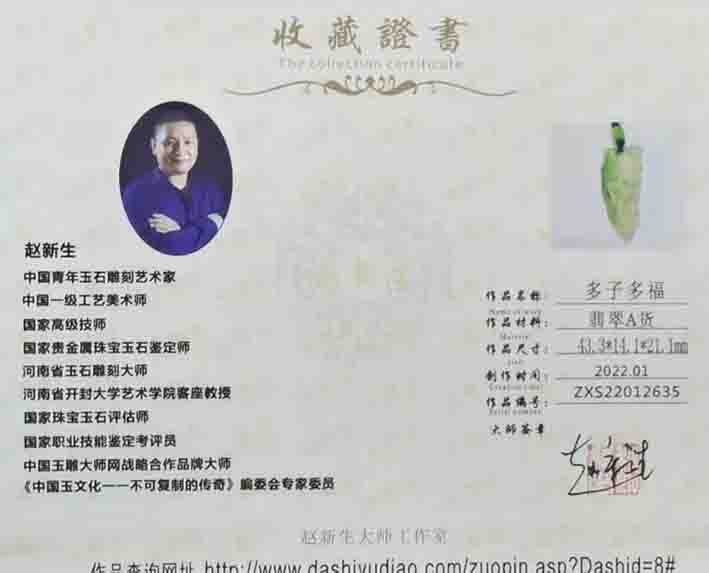 收藏證書
The collection certificate
赵新生
中国青年玉石雕刻艺术家
中国一级工艺美术师
国家高级技师
国家贵金属珠宝玉石鉴定师
河南省玉石雕刻大师
河南省开封大学艺术学院客座教授
国家珠宝玉石评估师
国家职业技能鉴定考评员
中国玉雕大师网战略合作品牌大师
《中国玉文化——不可复制的传奇》编委会专家委员
作品名称： 多子多福
Name of work
作品材料： 翡翠A货
Material
作品尺寸： 43.3*14.1*21.1mm
创作时间： 2022.01
Creation time
作品编号： ZXS22012635
Serial number
大师签章
赵新生大师工作室
作品查询网址 http://www.dashiyudiao.com/zuopin.asp?Dashid=8#